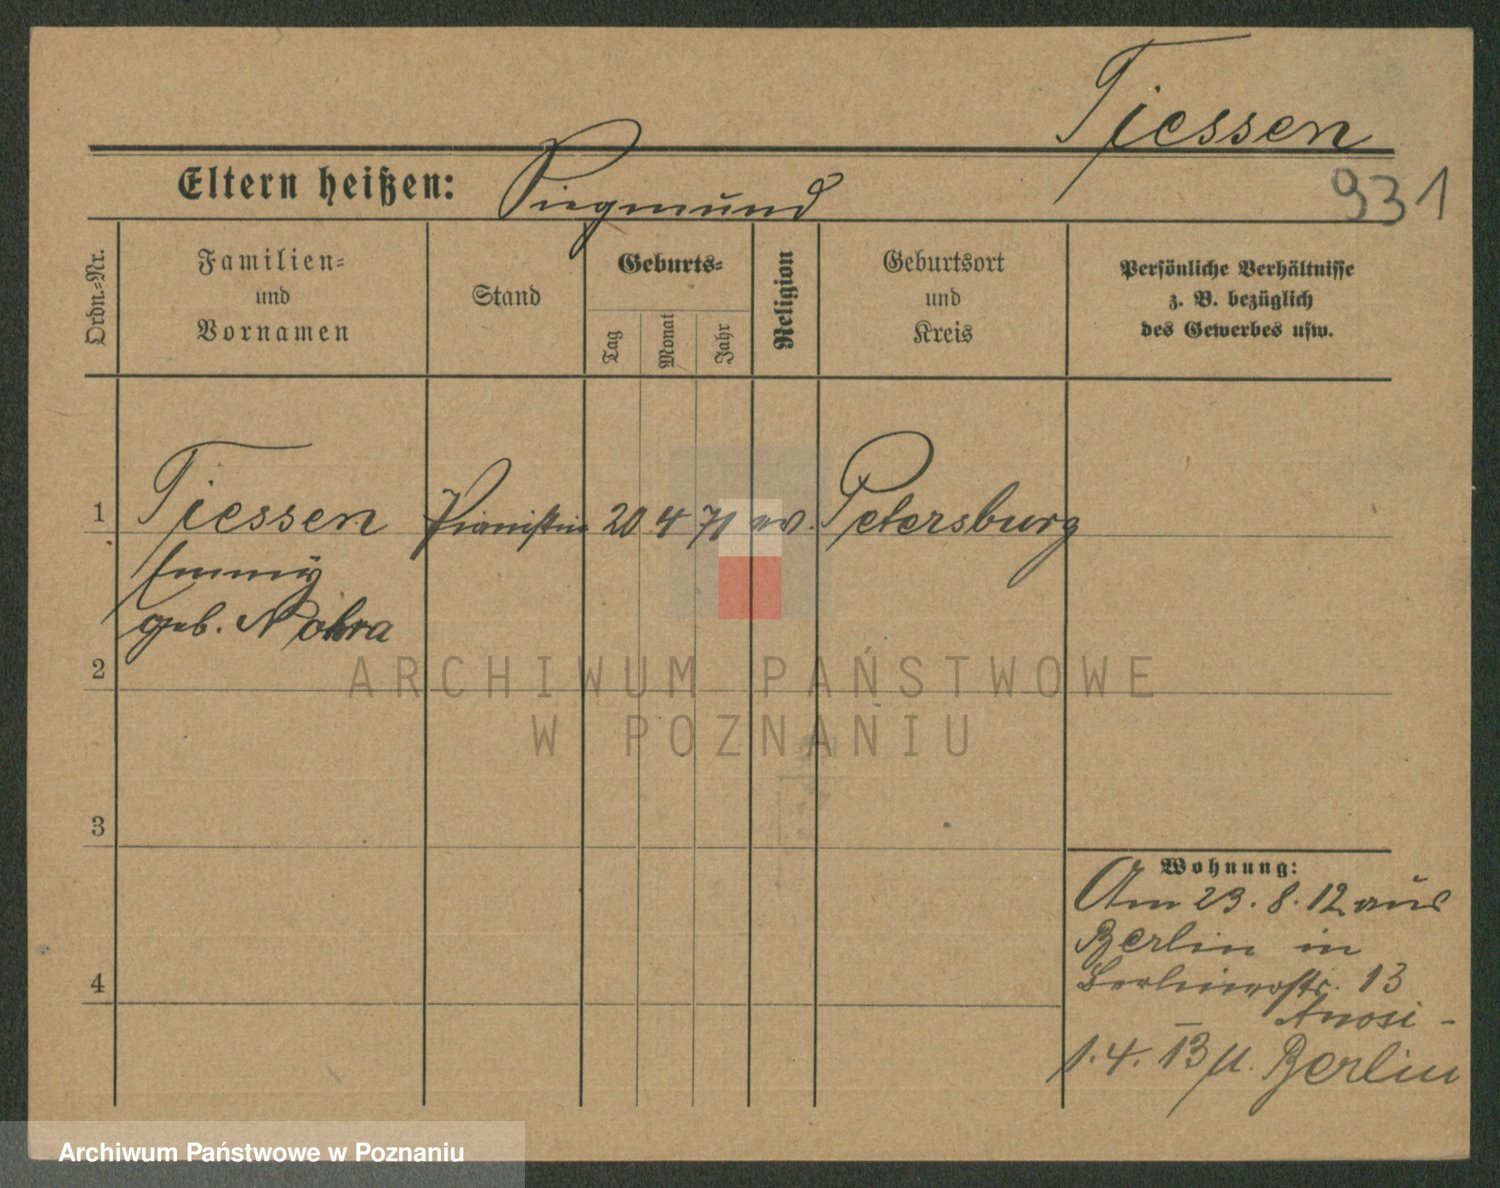 Tiessen
Eltern heißen: Siegmund
931
Ordn.-Nr.
Familien-
und
Vornamen
Stand
Geburts-
Tag
Monat
Jahr
Religion
Geburtsort
und
Kreis
Persönliche Verhältnisse
z. B. bezüglich
des Gewerbes usw.
1 Tiessen Pianistin 20 4 71 ev. Petersburg
Emmy
geb. Nohra
2
3
4
Wohnung:
Am 23. 8. 12 aus
Berlin in
Berlinerstr. 13
1. 4. 13 n. Berlin
ARCHIWUM PAŃSTWOWE
W POZNANIU
Archiwum Państwowe w Poznaniu